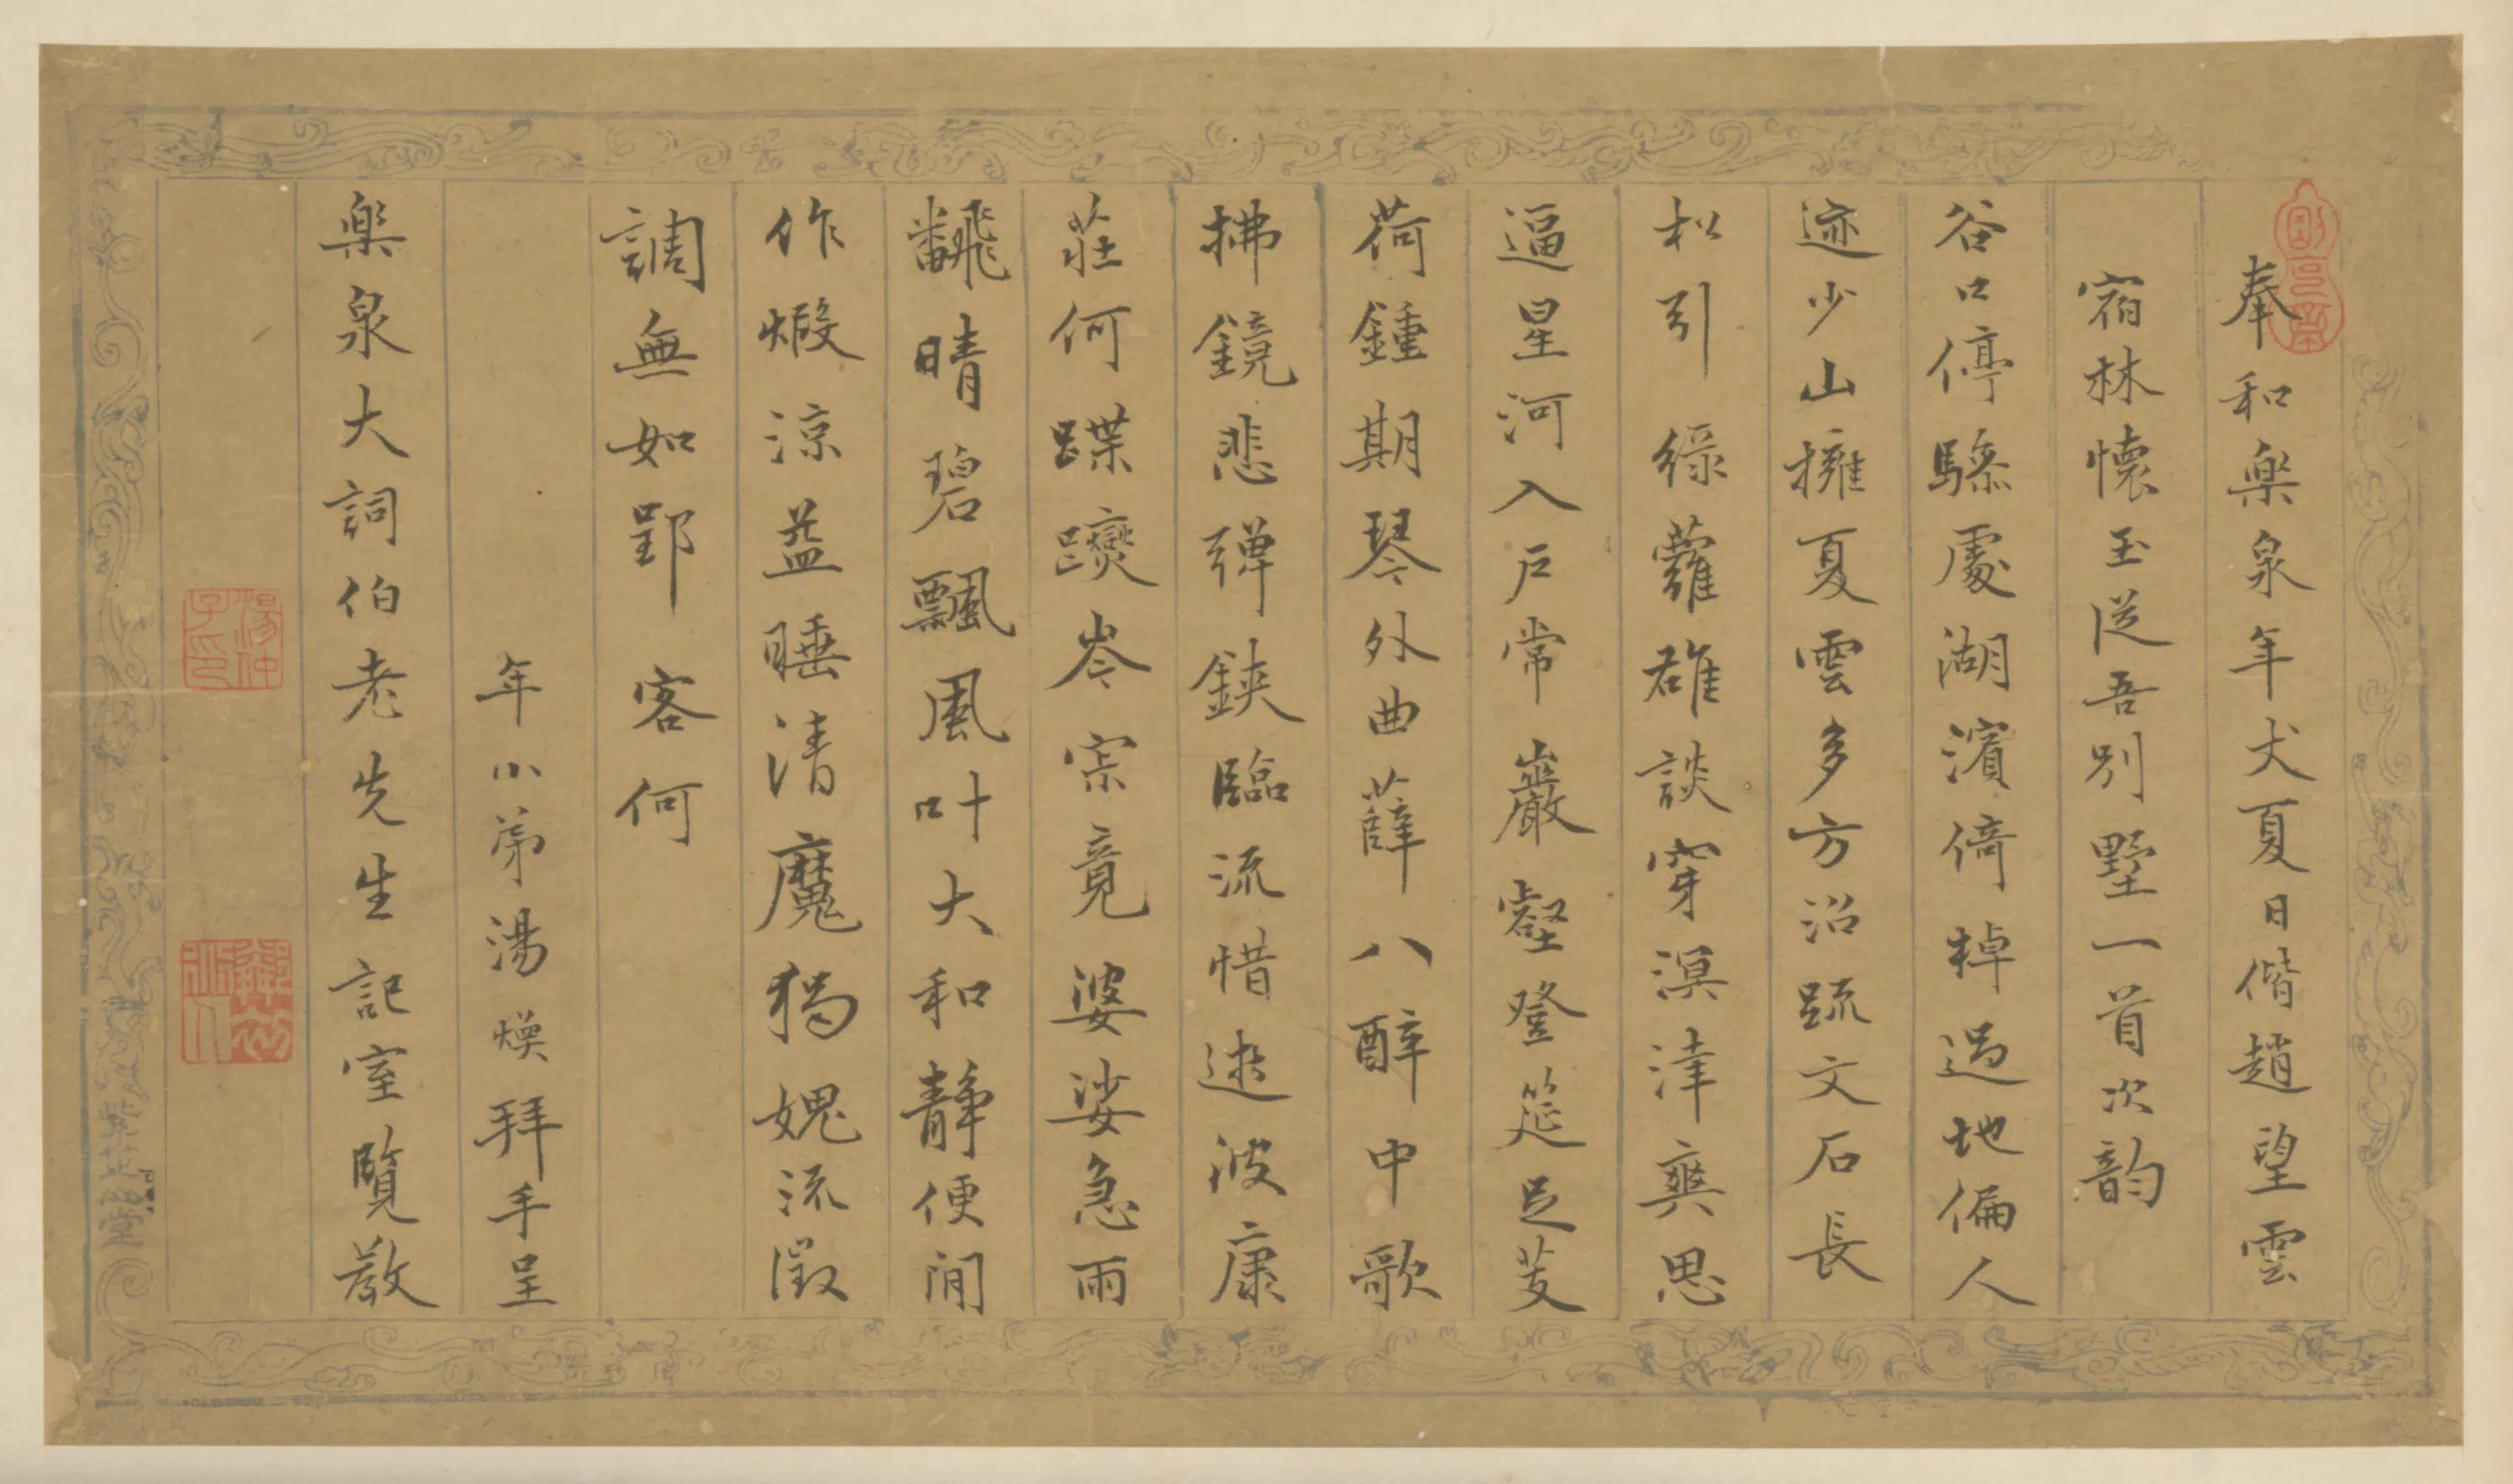 奉和樂泉年丈夏日偕趙望雲
宿林懷玉從吾別墅一首次韵
谷口停驂處湖濱倚棹過地偏人
迹少山擁夏雲多方沼疏文石長
松引綠蘿雄談穿溟涬爽思
逼星河入戶常巖壑登筵足芰
荷鍾期琴外曲薛八醉中歌
拂鏡悲彈鋏臨流惜逝波康
莊何蹀躞岑崇竟婆娑急雨
飜晴碧飄風叶大和靜便閒
作煅涼益睡清魔獨媿流徵
調無如郢客何
年小弟湯煥拜手呈
樂泉大詞伯老先生記室覽教
湯仲子印
紫芝堂